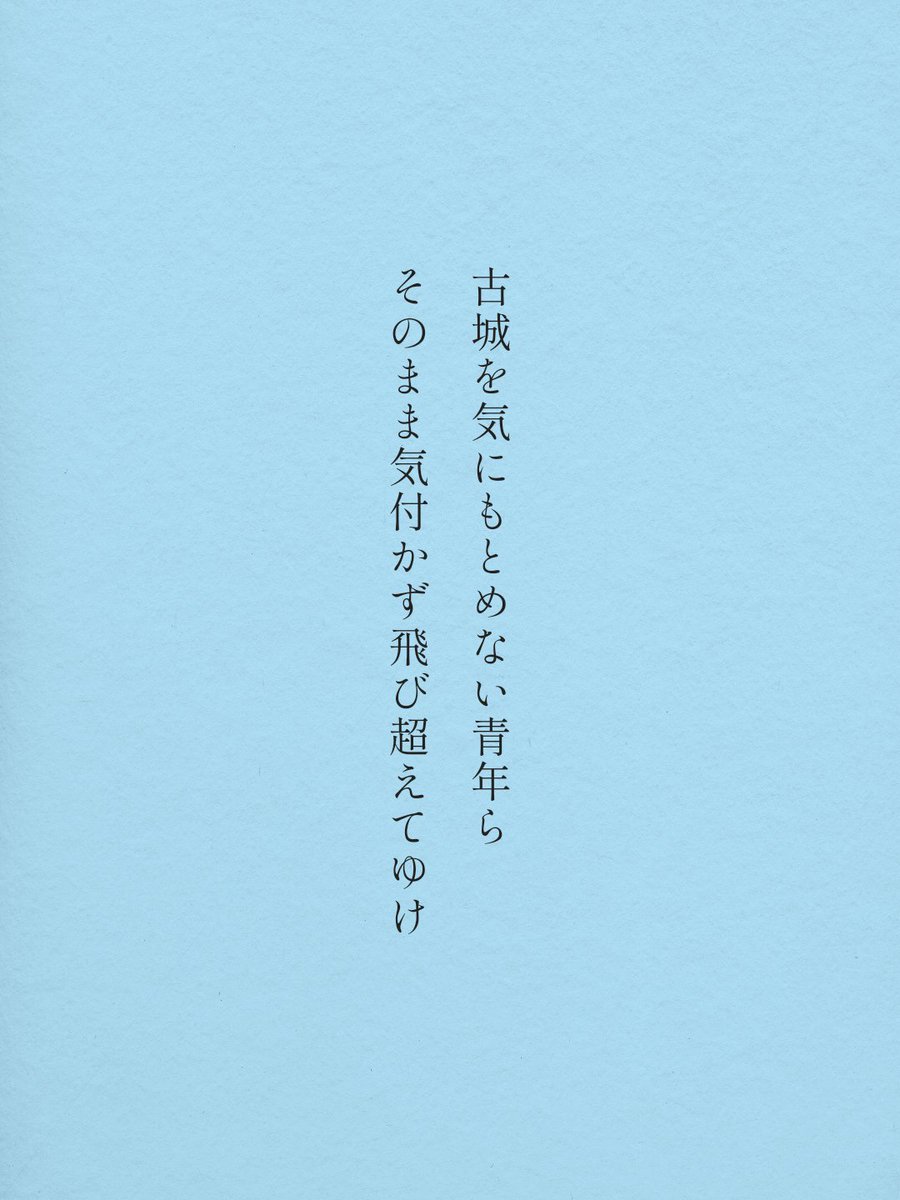 古城を気にもとめない青年ら
そのまま気付かず飛び超えてゆけ